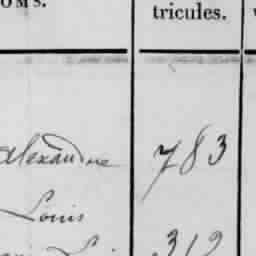 OMS.
tricules.
Alexandre 783
Louis
319